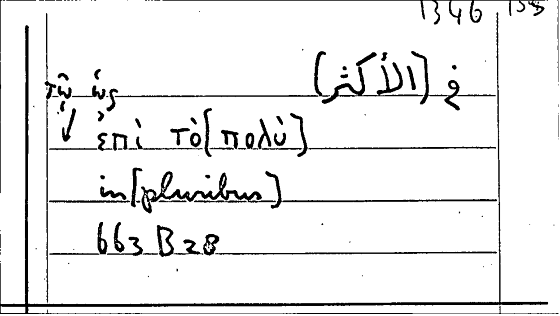 1346
في (الأكثر)
τῷ ὡς
ἐπὶ τὸ [πολὺ]
in [pluribus]
663 B 28